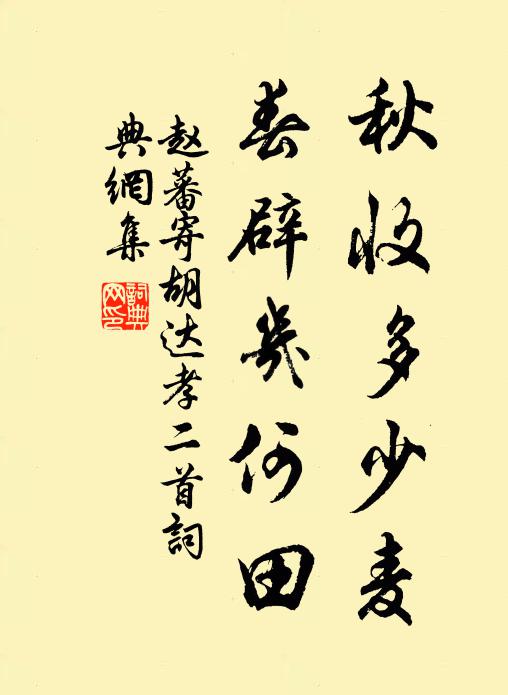 秋收多少麦
春辟几何田
赵蕃寄胡达孝二首詞
典網集
詞典网印